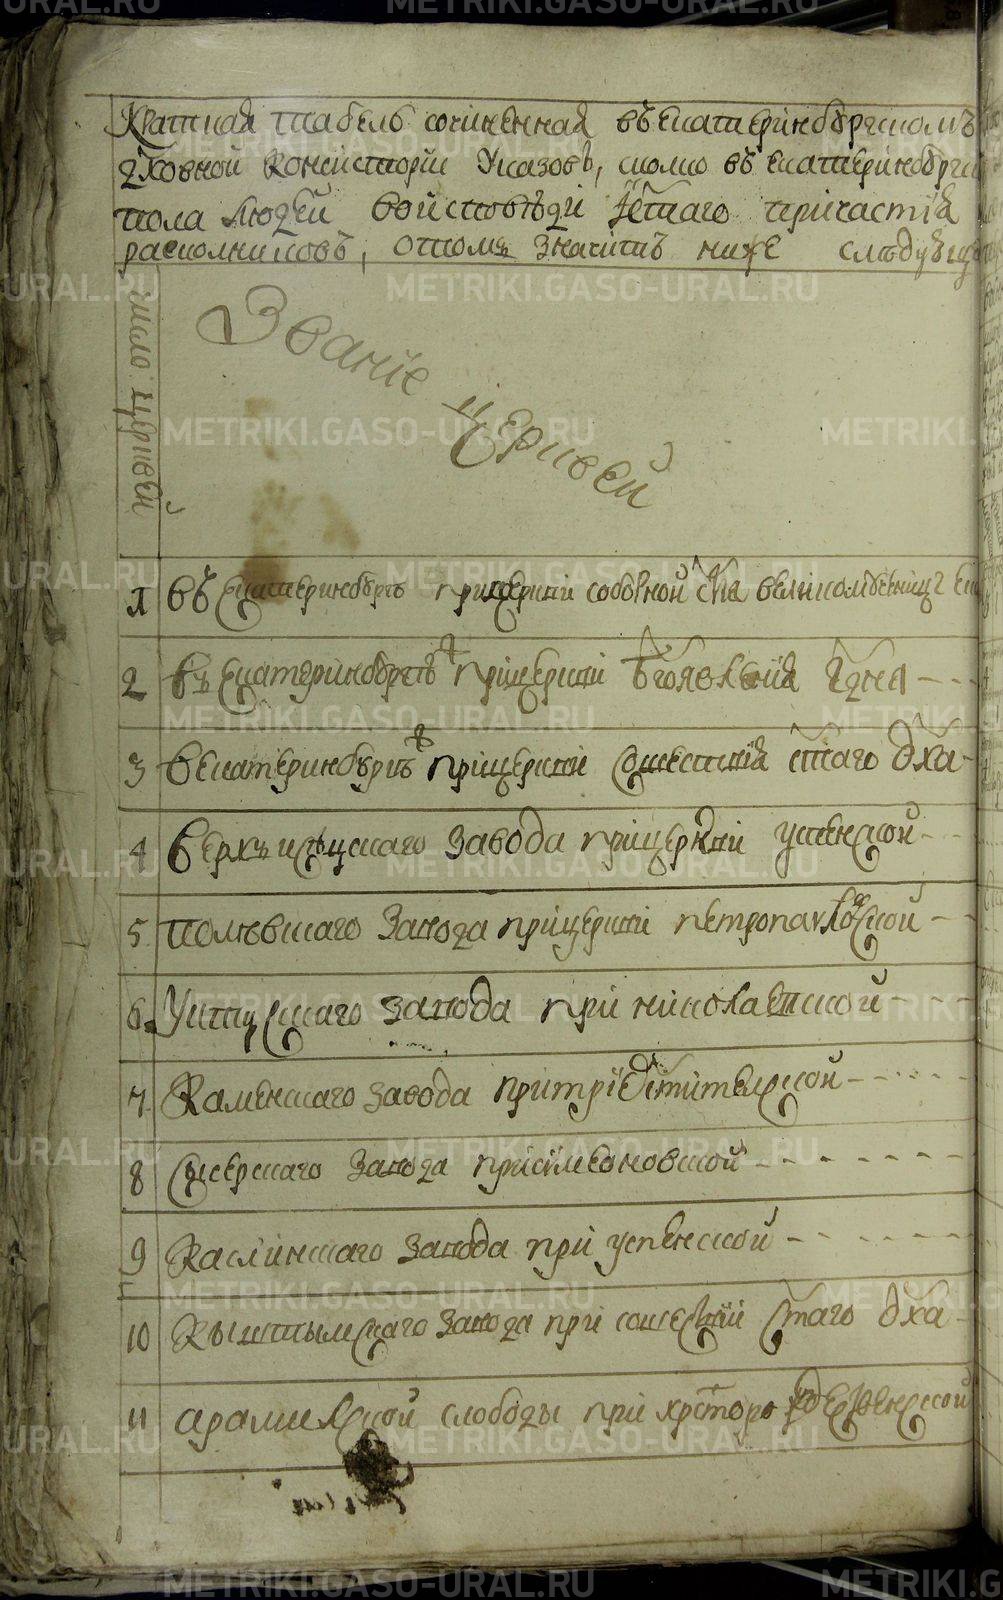 Краткая табель сочиненная въ Екатерінбургскомъ
дховной Консисторіи Указовъ, сколко въ Екатерінбург
пола людей воисповѣди стаго прічастія
расколниковъ, отомъ значитъ ниже слѣдующ
число церквей
Званіе церквей
1 въ Екатерінбургѣ прицеркви соборной стыя великомченицы Ек
2 въ Екатерінбургѣ прицеркви Бгоявленія Гдня
3 въ Екатерінбургѣ прицеркви сошествія стаго дха
4 Верхъисѣцкаго завода прицеркви успенской
5 полѣвскаго завода прицеркви петропавловской
6 Уктускаго завода при николаевской
7 Каменскаго завода при
8 сысерскаго завода присимеоновской
9 Каслинскаго завода при успенской
10 Кыштымскаго завода при сошествіи стаго дха
11 арамилской слободы при хрсторождественской
METRIKI.GASO-URAL.RU